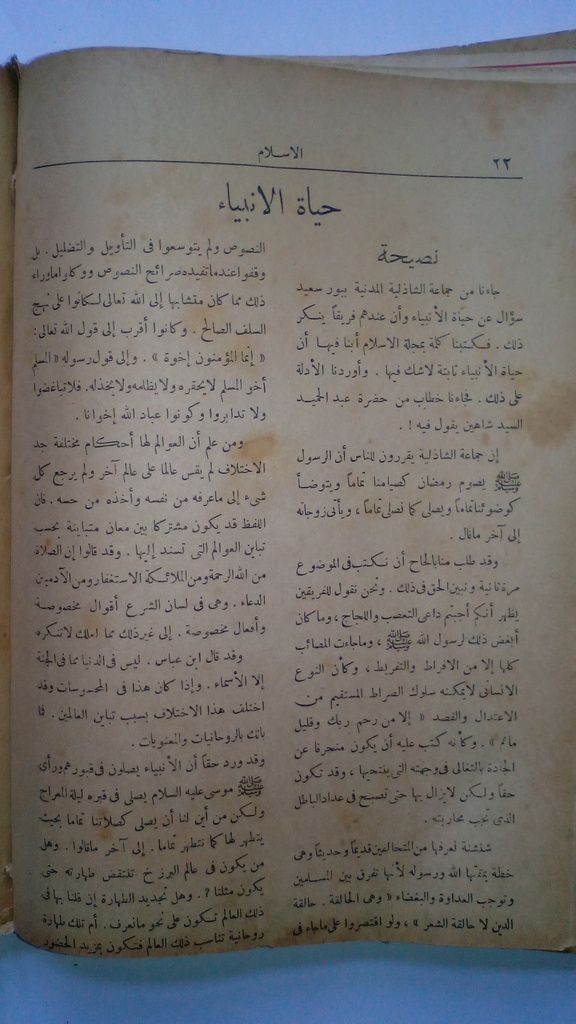 ٢٢
الاسلام
حياة الانبياء
نصيحة
جاءنا من جماعة الشاذلية المدنية ببور سعيد
سؤال عن حياة الأنبياء وأن عندهم فريقاً ينكر
ذلك . فكتبنا كلمة بمجلة الاسلام أبنا فيها أن
حياة الأنبياء ثابتة لاشك فيها . وأوردنا الأدلة
على ذلك . فجاءنا خطاب من حضرة عبد الحميد
السيد شاهين يقول فيه ! .
إن جماعة الشاذلية يقررون للناس أن الرسول
ﷺ يصوم رمضان كصيامنا تماماً ويتوضأ
كوضوئنا تماماً ويصلى كما نصلى تماماً ، ويأتى زوجاته
إلى آخر ماقال .
وقد طلب منا بالحاح أن نكتب فى الموضوع
مرة ثانية ونبين الحق فى ذلك . ونحن نقول للفريقين
يظهر أنكم أجبتم داعى التعصب واللجاج ، وما كان
أبغض ذلك لرسول الله ﷺ ، وماجاءت المصائب
كلها إلا من الافراط والتفريط ، وكأن النوع
الانسانى لايمكنه سلوك الصراط المستقيم من
الاعتدال والقصد « إلا من رحم ربك وقليل
ماهم » . وكأنه كتب عليه أن يكون منحرفا عن
الجادة بالتغالى فى وجهته التى ينتحيها ، وقد تكون
حقاً ولكن لايزال بها حتى تصبح فى عداد الباطل
الذى تجب محاربته .
شنشنة نعرفها من المتخالفين قديماً وحديثاً وهى
خطة يمقتها الله ورسوله لأنها تفرق بين المسلمين
وتوجب العداوة والبغضاء « وهى الحالقة . حالقة
الدين لا حالقة الشعر » ، ولو اقتصروا على ماجاء فى
النصوص ولم يتوسعوا فى التأويل والتضليل . بل
وقفوا عند ماتفيده صرائح النصوص ووكلوا ماوراء
ذلك مما كان متشابها إلى الله تعالى لكانوا على نهج
السلف الصالح . وكانوا أقرب إلى قول الله تعالى :
« إنما المؤمنون إخوة » . وإلى قول رسوله « المسلم
أخو المسلم لايحقره ولايظلمه ولايخذله . فلا تباغضوا
ولا تدابروا وكونوا عباد الله إخوانا .
ومن علم أن العوالم لها أحكام مختلفة جد
الاختلاف لم يقس عالما على عالم آخر ولم يرجع كل
شىء إلى ماعرفه من نفسه وأخذه من حسه . فان
اللفظ قد يكون مشتركا بين معان متباينة بحسب
تباين العوالم التى تسند إليها . وقد قالوا إن الصلاة
من الله الرحمة ومن الملائكة الاستغفار ومن الآدميين
الدعاء . وهى فى لسان الشرع أقوال مخصوصة
وأفعال مخصوصة . إلى غير ذلك مما لعلك لاتنكره
وقد قال ابن عباس . ليس فى الدنيا مما فى الجنة
إلا الأسماء . وإذا كان هذا فى المحسوسات وقد
اختلف هذا الاختلاف بسبب تباين العالمين . فما
بالك بالروحانيات والمعنويات .
وقد ورد حقاً أن الأنبياء يصلون فى قبورهم ورأى
ﷺ موسى عليه السلام يصلى فى قبره ليلة المعراج
ولكن من أين لنا أن يصلى كصلاتنا تماما بحيث
يتطهر لها كما نتطهر تماما . إلى آخر ماقالوا . وهل
من يكون فى عالم البرزخ تنتقض طهارته حتى
يكون مثلنا ؟ . وهل تجديد الطهارة إن قلنا بها فى
ذلك العالم تكون على نحو مانعرف . أم تلك طهارة
روحانية تناسب ذلك العالم فتكون بمزيد الحضور